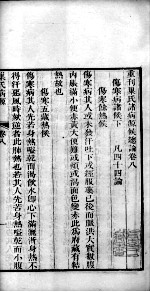 重刊巢氏諸病源候總論卷八
傷寒病諸候下 凡四十四論
傷寒餘熱候
傷寒病其人或未發汗吐下或經服藥已後而脈洪大實數腹
內脹滿小便赤黃大便難或煩或渴面色變赤此為腑臟有結
熱故也
傷寒五臟熱候
傷寒病其人先若身熱嗌乾而渴飲水即心下滿洒淅身熱不
得汗惡風時欬逆者此肺熱也若其人先若身熱嗌乾而小腹
巢氏病源
卷八